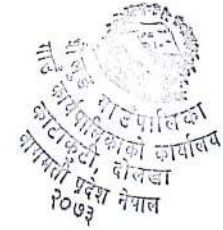 गाउँपालिका
गाउँ कार्यपालिकाको कार्यालय
काटाकुटी, दोलखा
बागमती प्रदेश नेपाल
२०७३